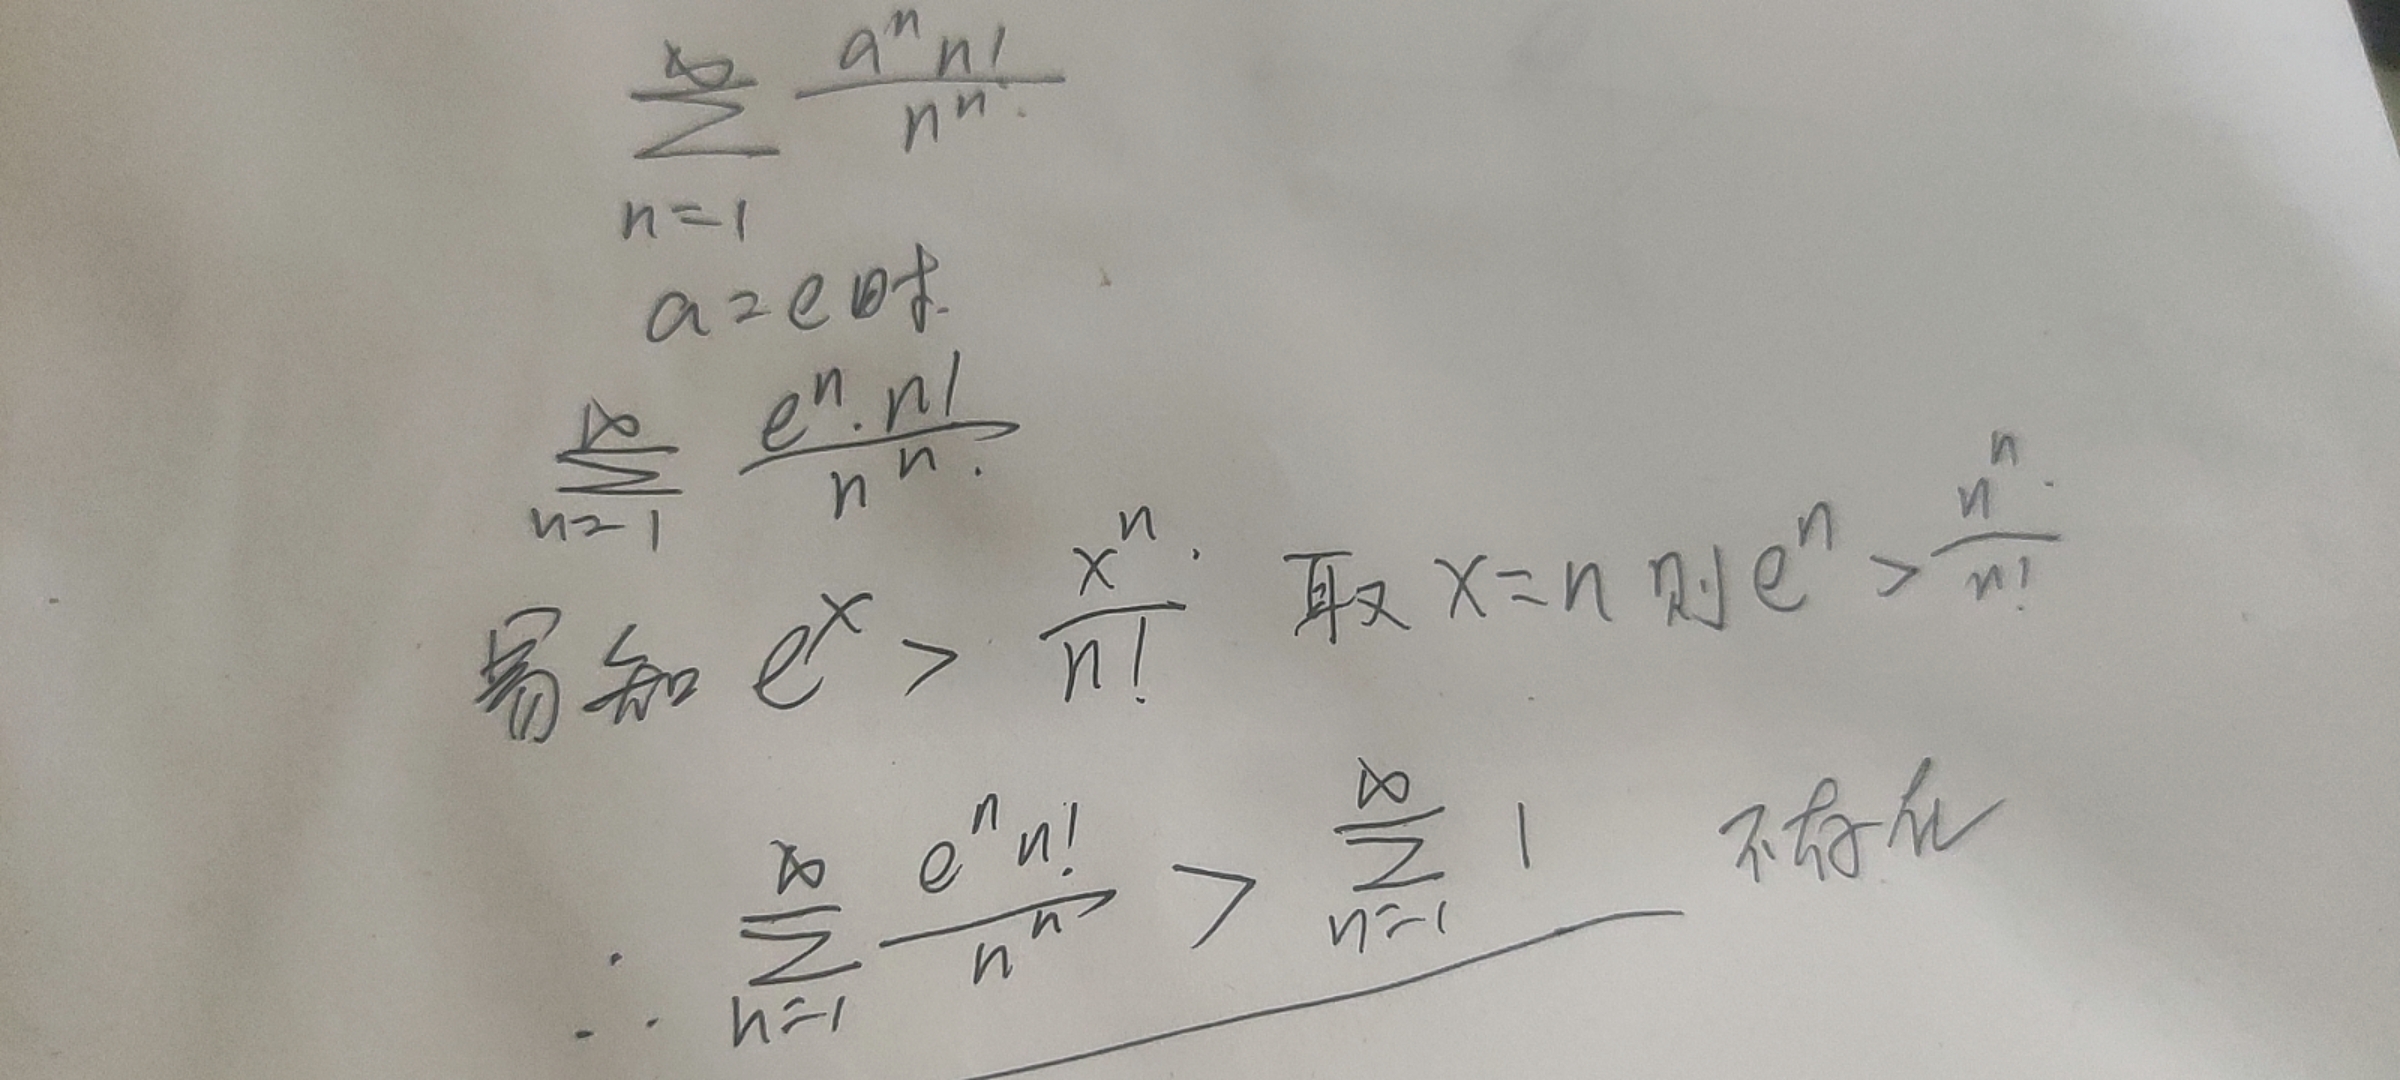 ∞
∑ aⁿ n! / nⁿ.
n=1
a=e时.
∞
∑ eⁿ·n! / nⁿ.
n=1
易知 eˣ > xⁿ/n!. 取 x=n 则 eⁿ > nⁿ/n!.
∴ ∑_{n=1}^{∞} eⁿ n! / nⁿ > ∑_{n=1}^{∞} 1 不存在